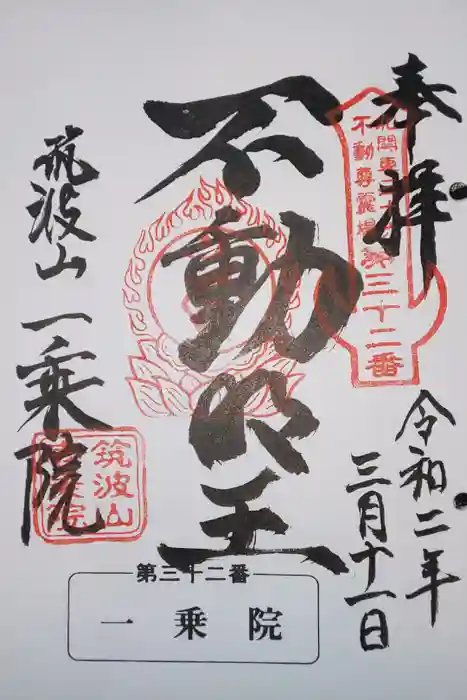 奉拝
北関東三十六
不動尊霊場第三十二番
令和二年
三月十一日
不動明王
筑波山一乗院
筑波山
一乗院
第三十二番
一乗院